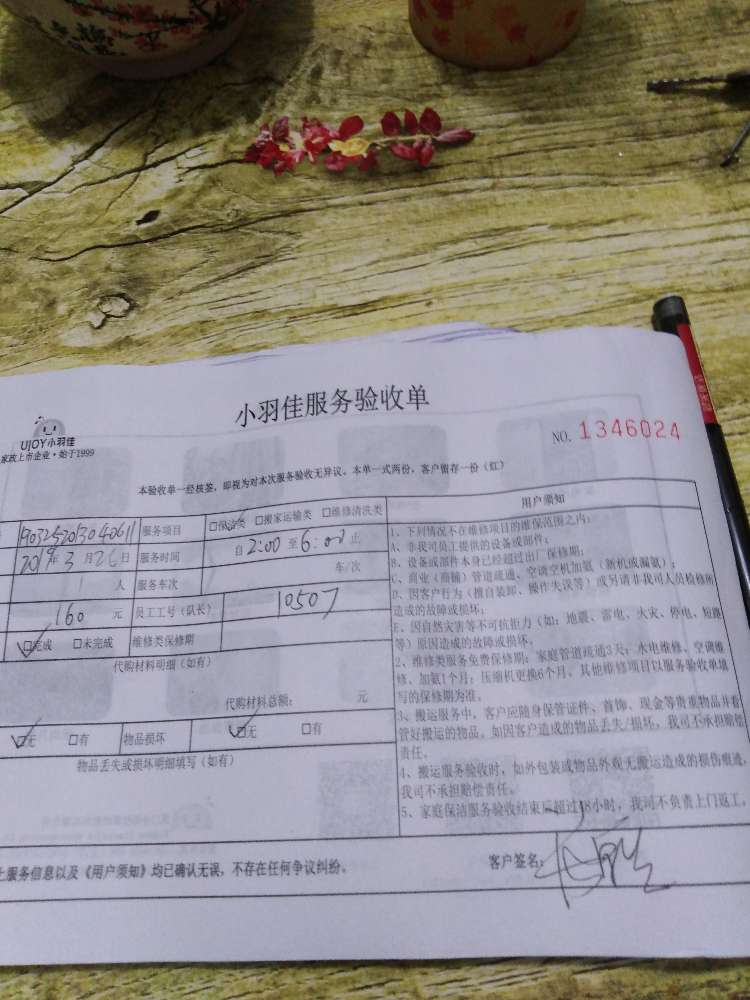 小羽佳服务验收单
UJOY小羽佳
家政上市企业·始于1999
NO. 1346024
本验收单一经核签,即视为对本次服务验收无异议。本单一式两份,客户留存一份(红)
服务项目 □保洁类 □搬家运输类 □维修清洗类
2019年3月26日 服务时间 自2:00至6:00止
1 人 服务车次 车/次
160 元 员工工号(队长) 10507
□完成 □未完成 维修类保修期
代购材料明细(如有)
代购材料总额: 元
□无 □有 物品损坏 □无 □有
物品丢失或损坏明细填写(如有)
用户须知
1、下列情况不在维修项目的维保范围之内:
A、非我司员工提供的设备或部件;
B、设备或部件本身已经超过出厂保修期;
C、商业(商铺)管道疏通、空调空机加氨(新机或漏氨);
D、因客户行为(擅自装卸、操作失误等)或另请非我司人员检修所
造成的故障或损坏;
E、因自然灾害等不可抗拒力(如:地震、雷电、火灾、停电、短路
等)原因造成的故障或损坏。
2、维修类服务免费保修期:家庭管道疏通3天;水电维修、空调维
修、加氨1个月;压缩机更换6个月。其他维修项目以服务验收单填
写的保修期为准。
3、搬运服务中,客户应随身保管证件、首饰、现金等贵重物品并看
管好搬运的物品。如因客户造成的物品丢失/损坏,我司不承担赔偿
责任。
4、搬运服务验收时,如外包装或物品外观无搬运造成的损伤痕迹,
我司不承担赔偿责任。
5、家庭保洁服务验收结束后超过48小时,我司不负责上门返工。
上服务信息以及《用户须知》均已确认无误,不存在任何争议纠纷。
客户签名: